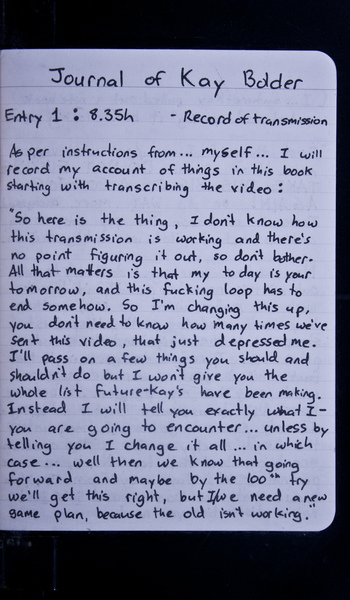 Journal of Kay Bolder
Entry 1 : 8.35h - Record of transmission
As per instructions from... myself... I will
record my account of things in this book
starting with transcribing the video :
"So here is the thing, I don't know how
this transmission is working and there's
no point figuring it out, so don't bother.
All that matters is that my today is your
tomorrow, and this fucking loop has to
end somehow. So I'm changing this up,
you don't need to know how many times we've
sent this video, that just depressed me.
I'll pass on a few things you should and
shouldn't do but I won't give you the
whole list future-Kay's have been making.
Instead I will tell you exactly what I-
you are going to encounter... unless by
telling you I change it all... in which
case... well then we know that going
forward and maybe by the 100th try
we'll get this right, but I/we need a new
game plan, because the old isn't working."